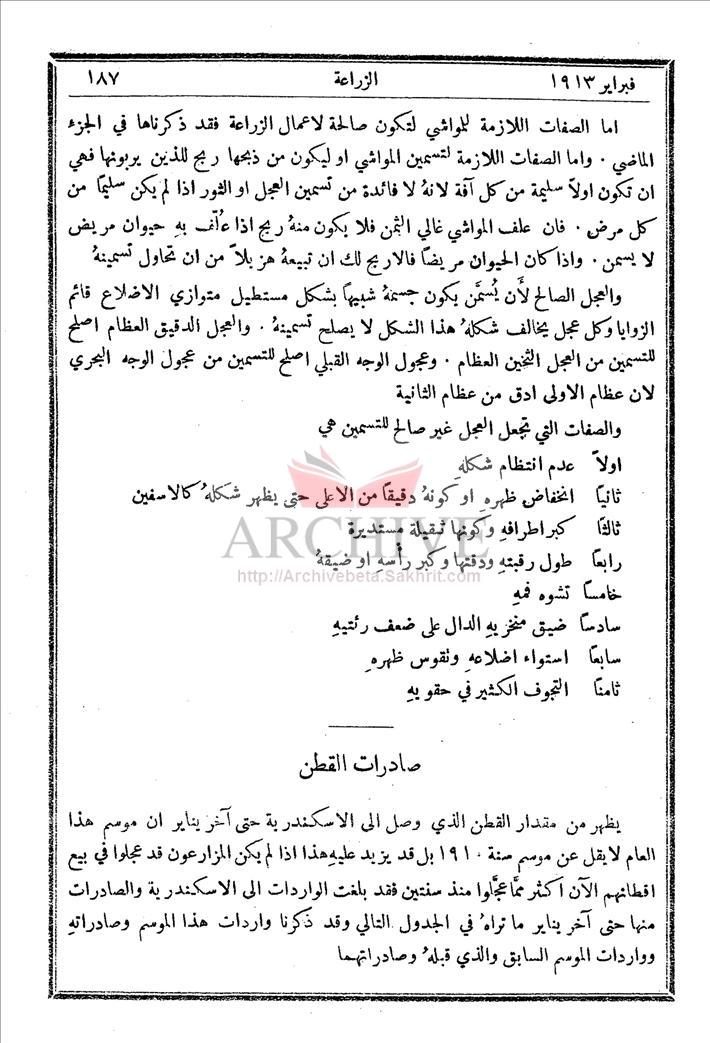 فبراير ١٩١٣ الزراعة ١٨٧
اما الصفات اللازمة للمواشي لتكون صالحة لاعمال الزراعة فقد ذكرناها في الجزء
الماضي . واما الصفات اللازمة لتسمين المواشي او ليكون من ذبحها ربح للذين يربونها فهي
ان تكون اولاً سليمة من كل آفة لانهُ لا فائدة من تسمين العجل او الثور اذا لم يكن سليمًا من
كل مرض . فان علف المواشي غالي الثمن فلا يكون منهُ ربح اذا عُلف بهِ حيوان مريض
لا يسمن . واذا كان الحيوان مريضًا فالاربح لك ان تبيعهُ هزيلاً من ان تحاول تسمينهُ
والعجل الصالح لأَن يُسمَّن يكون جسمهُ شبيهاً بشكل مستطيل متوازي الاضلاع قائم
الزوايا وكل عجل يخالف شكلهُ هذا الشكل لا يصلح تسمينهُ . والعجل الدقيق العظام اصلح
للتسمين من العجل الثخين العظام . وعجول الوجه القبلي اصلح للتسمين من عجول الوجه البحري
لان عظام الاولى ادق من عظام الثانية
والصفات التي تجعل العجل غير صالح للتسمين هي
اولاً عدم انتظام شكلهِ
ثانيًا انخفاض ظهرهِ او كونهُ دقيقًا من الاعلى حتى يظهر شكلهُ كالاسفين
ثالثًا كبر اطرافهِ وكونها ثقيلة مستديرة
ARCHIVE
رابعًا طول رقبتهِ ودقتها وكبر رأْسهِ او ضيقهُ
http://Archivebeta.Sakhrit.com
خامسًا تشوه فمهِ
سادسًا ضيق منخريهِ الدال على ضعف رئتيهِ
سابعًا استواء اضلاعهِ وتقوس ظهرهِ
ثامنًا التجوف الكثير في حقويهِ
صادرات القطن
يظهر من مقدار القطن الذي وصل الى الاسكندرية حتى آخر يناير ان موسم هذا
العام لا يقل عن موسم سنة ١٩١٠ بل قد يزيد عليهِ هذا اذا لم يكن المزارعون قد عجلوا في بيع
اقطانهم الآن اكثر ممَّا عجَّلوا منذ سنتين فقد بلغت الواردات الى الاسكندرية والصادرات
منها حتى آخر يناير ما تراهُ في الجدول التالي وقد ذكرنا واردات هذا الموسم وصادراتهِ
وواردات الموسم السابق والذي قبلهُ وصادراتهما